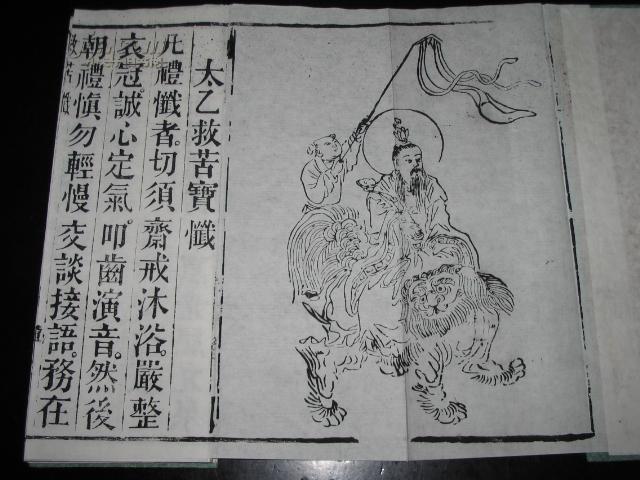 太乙救苦寶懺
凡禮懺者。切須齋戒沐浴。嚴整
衣冠。誠心定氣。叩齒演音。然後
朝禮慎勿輕慢交談接語。務在